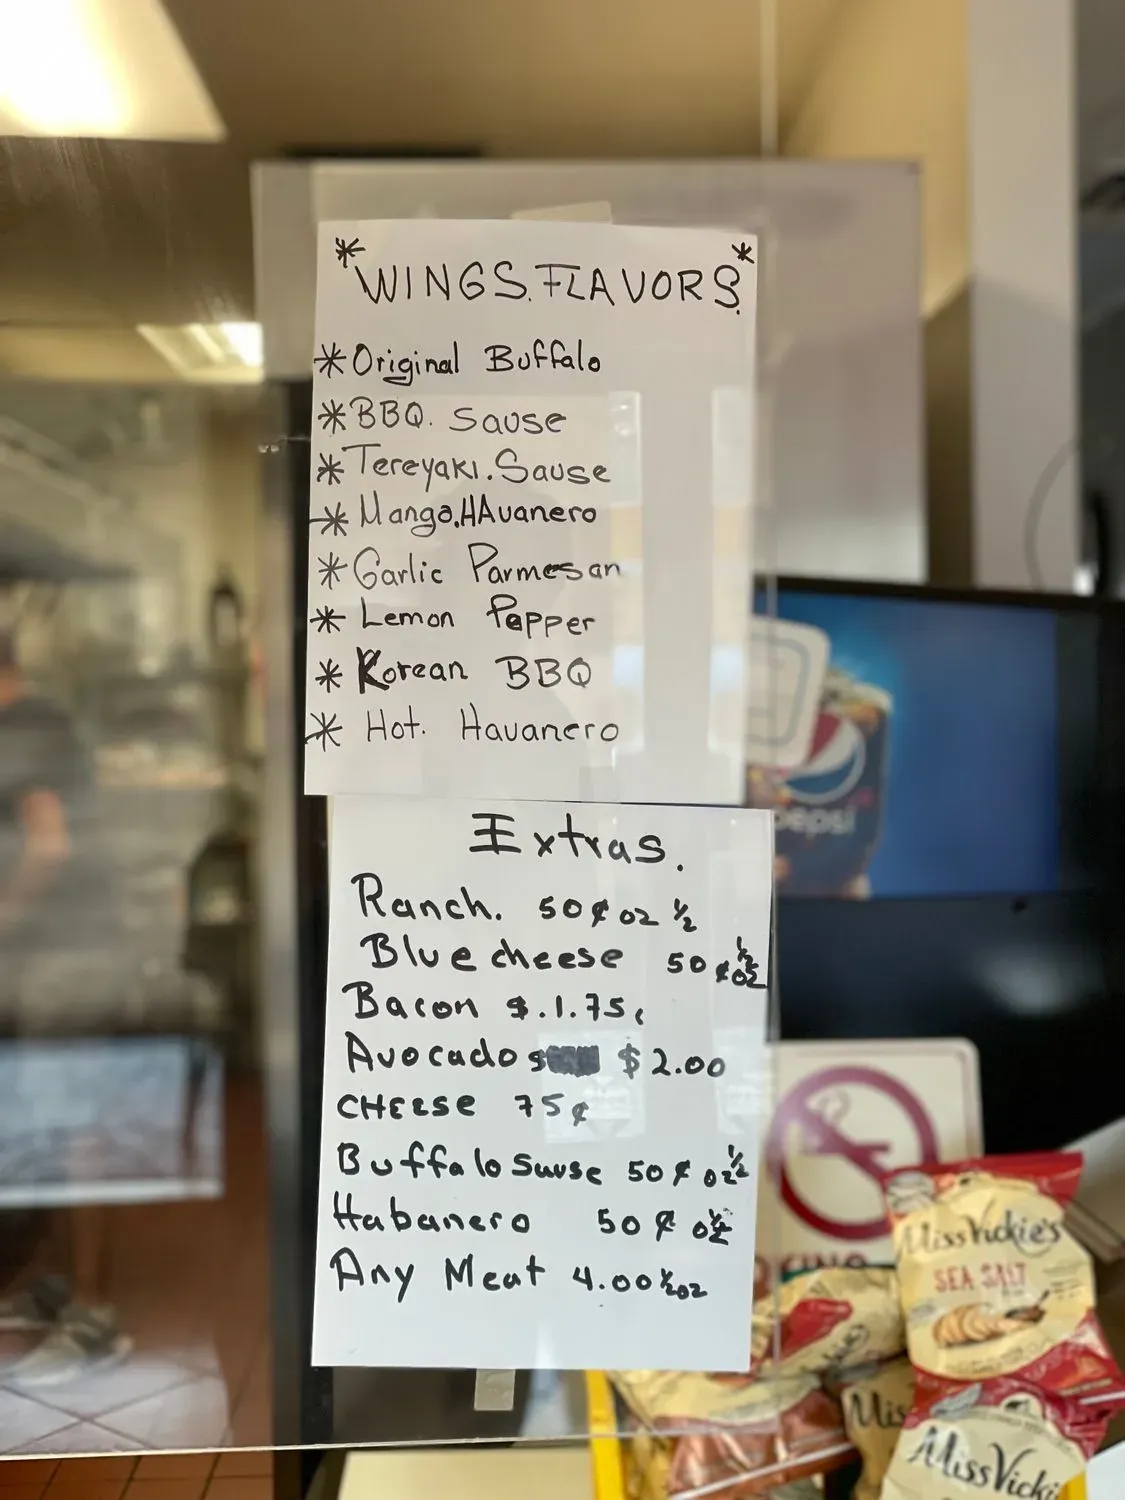 * WINGS. FLAVORS. *
* Original Buffalo
* BBQ. Sause
* Tereyaki. Sause
* Mango, HAvanero
* Garlic Parmesan
* Lemon Pepper
* Korean BBQ
* Hot. Havanero
Extras.
Ranch. 50¢ oz ½
Blue cheese 50¢ ½ oz
Bacon $.1.75¢
Avocado $2.00
CHEESE 75¢
Buffalo Sause 50¢ oz ½
Habanero 50¢ oz ½
Any Meat 4.00 ½ oz
pepsi
Miss Vickie's
SEA SALT
Miss Vicki